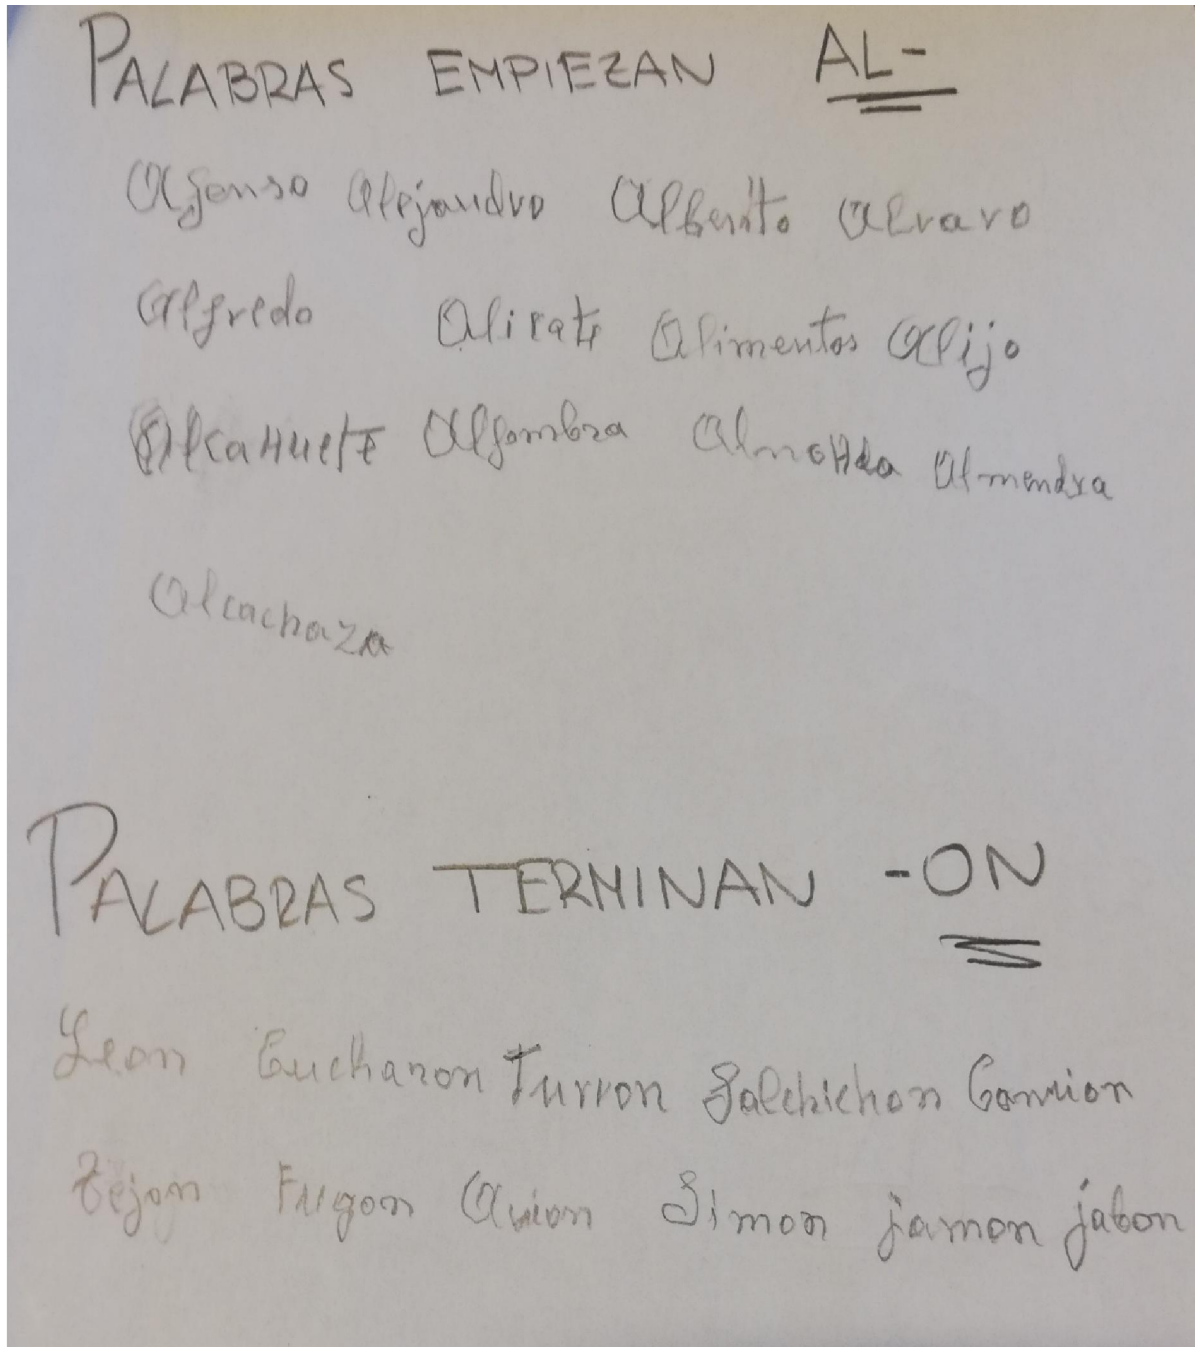 PALABRAS EMPIEZAN AL-
Afonso Alejandro Alberto Alvaro
Alfredo Alicate Alimentos Alijo
Alcahuete Alfombra Almohda Almendra
Alcachaza
PALABRAS TERMINAN -ON
Leon Cucharon Turron Salchichon Camion
Tejon Fugon Avion Simon jamon jabon